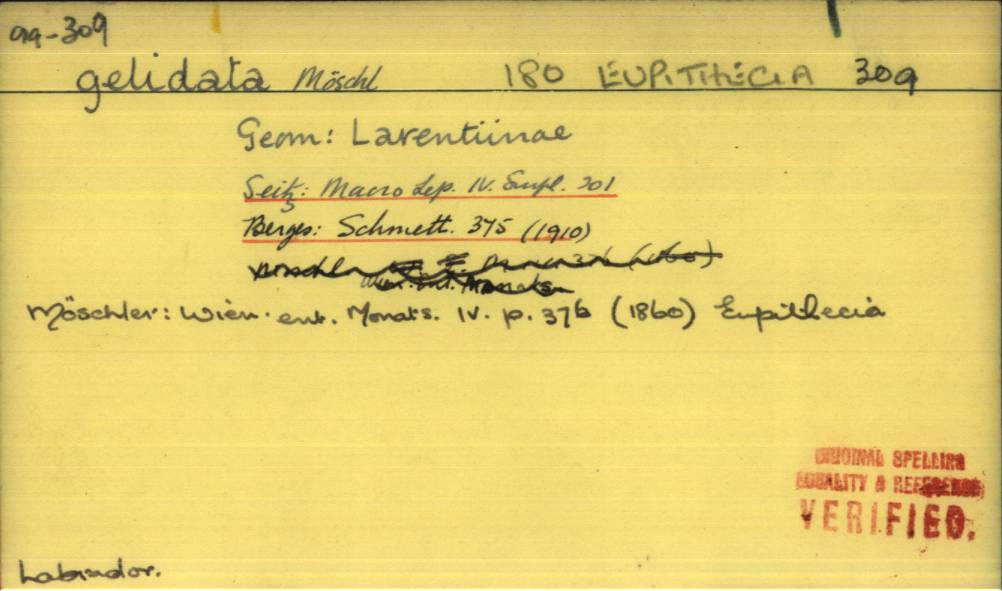 99-309
gelidata Möschl 180 EUPITHECIA 309
Geom: Larentiinae
Seitz: Macro Lep. IV. Supl. 201
Berges: Schmett. 375 (1910)
Möschler (1860)
Wien. ent. Monats.
Möschler: Wien. ent. Monats. IV. p. 376 (1860) Eupithecia
ORIGINAL SPELLING
LOCALITY & REFERENCE
VERIFIED.
Labrador.